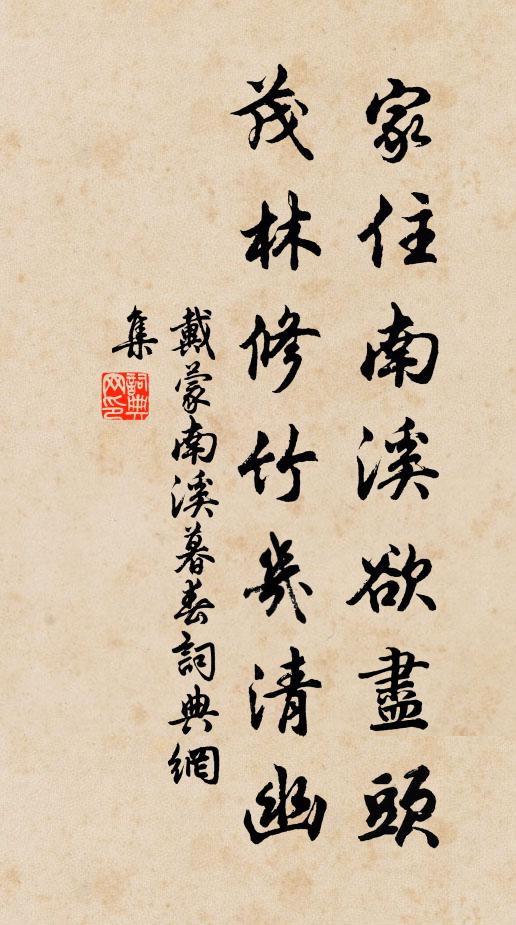 家住南溪欲盡頭
茂林修竹幾清幽
戴蒙南溪暮春詞典網
集
詞典網印